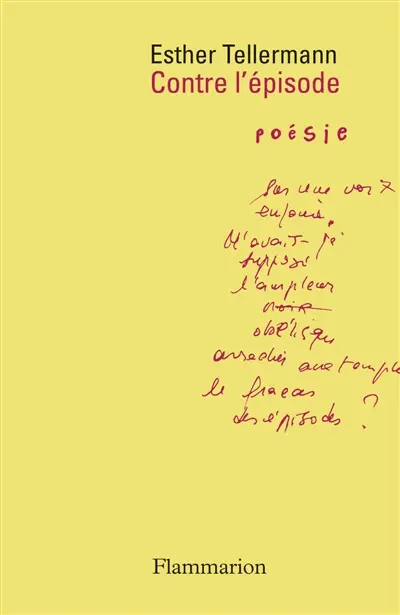 Esther Tellermann
Contre l'épisode
poésie
Sur une voix
enfouie.
N'avait-je
supposé
l'ampleur
noire
obélisque
arrachée aux temples
le fracas
des épisodes ?
Flammarion